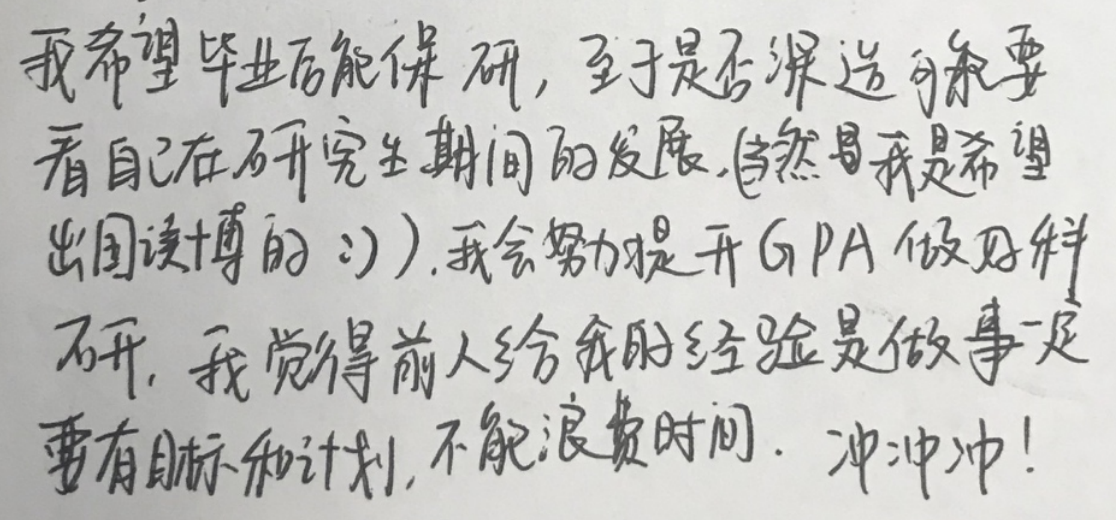 我希望毕业后能保研，至于是否深造可能要
看自己在研究生期间的发展.(当然我是希望
出国读博的:)).我会努力提升GPA做好科
研，我觉得前人给我的经验是做事一定
要有目标和计划,不能浪费时间. 冲冲冲!